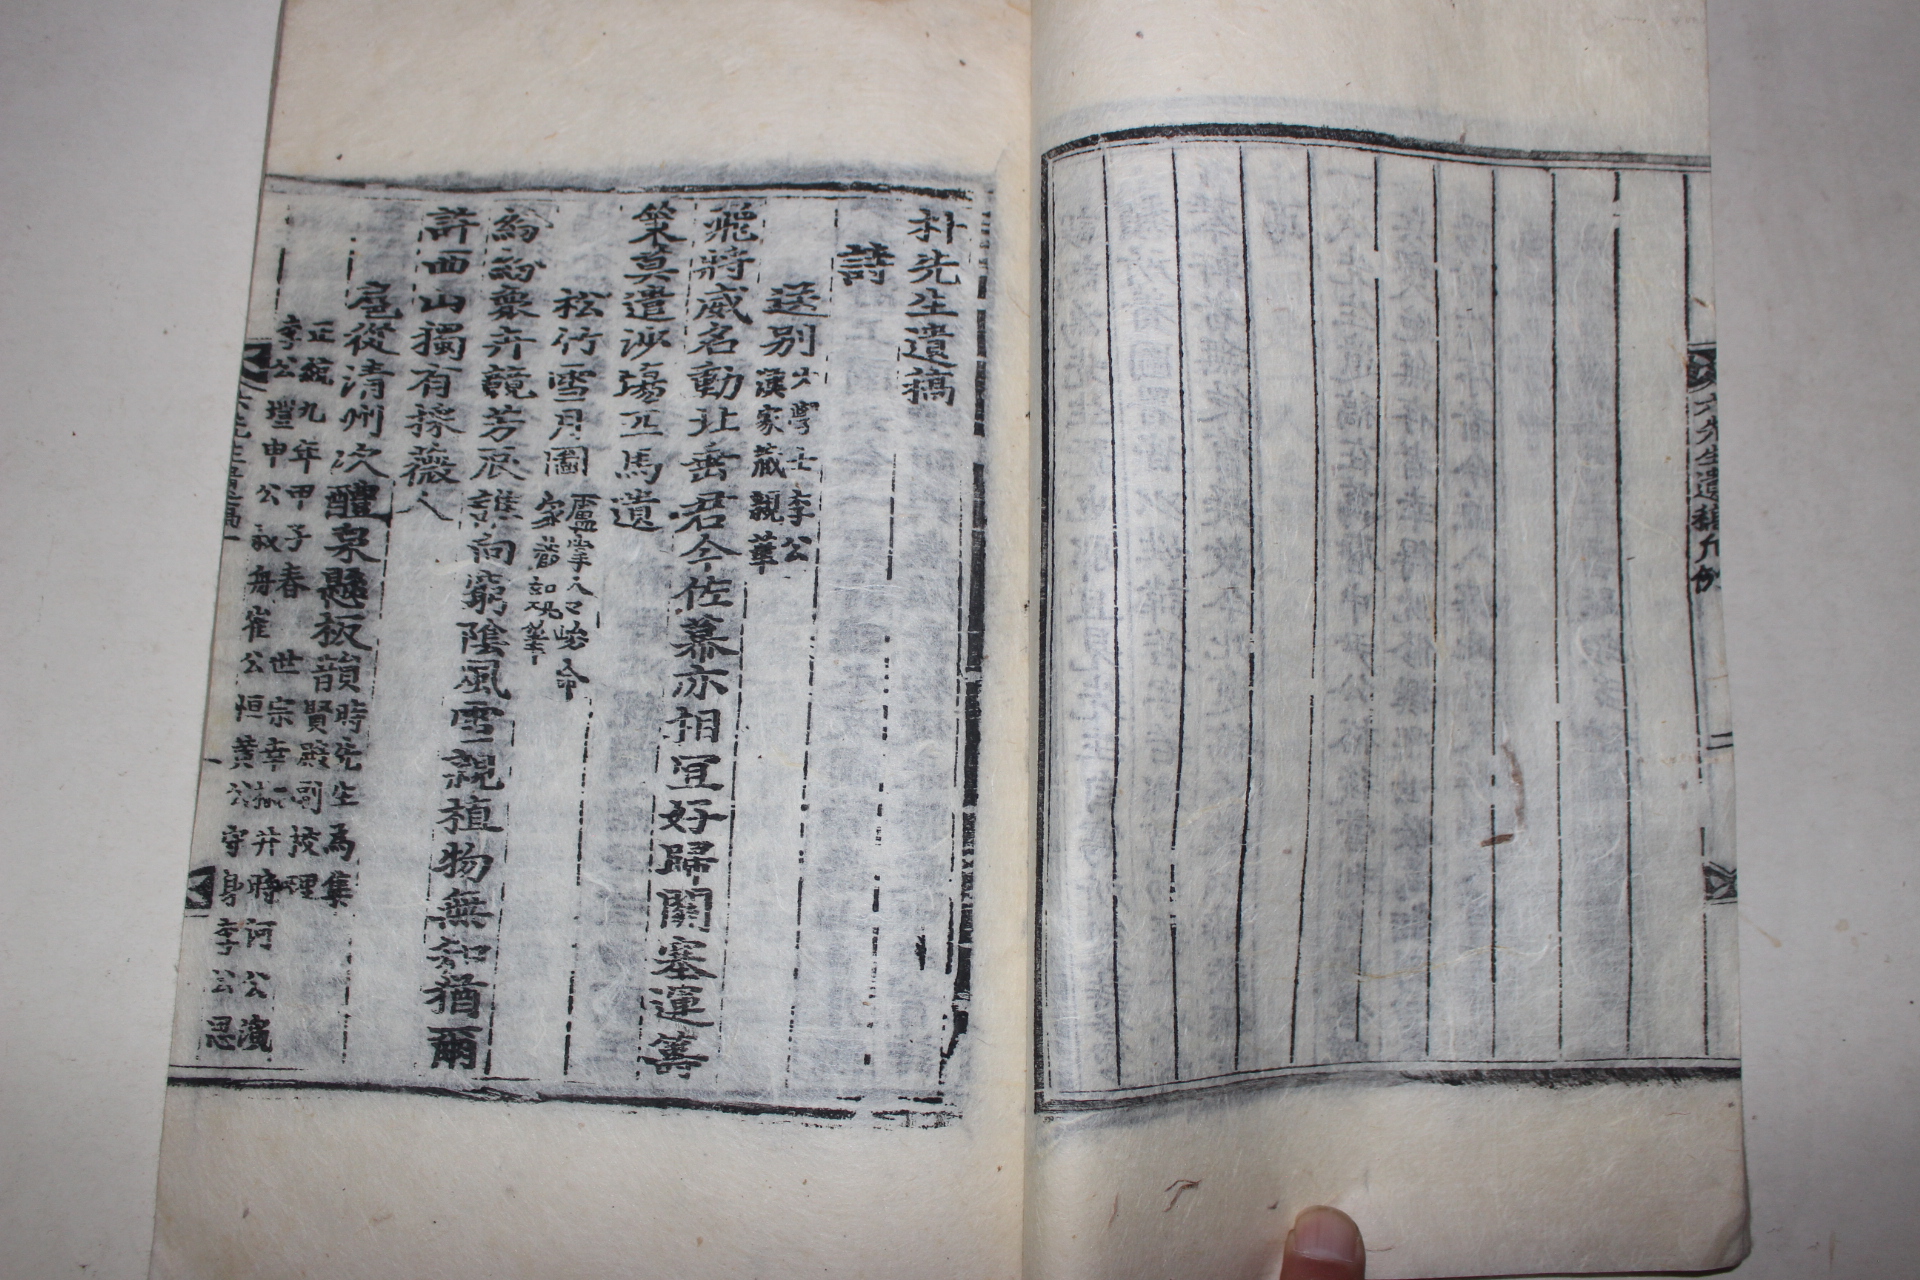 六先生遺稿凡例
二
朴先生遺稿
詩
送別
大學士李公
漢家藏親筆
飛將威名動北垂君今佐幕亦相宜好歸關塞運籌
策莫遣沙場匹馬遺
松竹雪月圖
盧掌令峻命
家藏
筆
紛紛衆卉競芳辰誰向窮陰風雪親植物無知猶爾
許西山獨有採薇人
扈從清州次醴泉懸板韻
時先生爲集
賢殿副校理
正統九年甲子春世宗幸椒井時河公
李公塏申公叔舟崔公恒黃公守身李公思
六先生遺稿
一